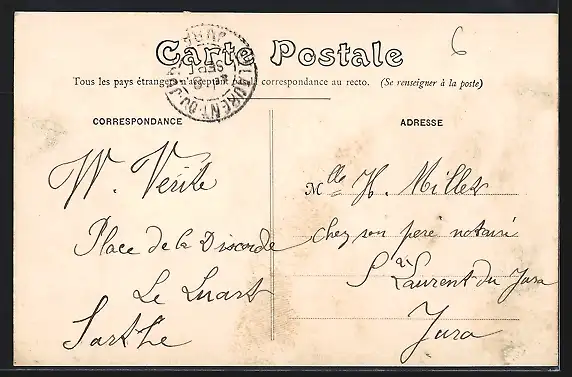 6
Carte Postale
Tous les pays étrangers n'acceptent pas la correspondance au recto. (Se renseigner à la poste)
CORRESPONDANCE
W. Vérité
Place de la Discorde
Le Luart
Sarthe
ADRESSE
Mlle H. Millet
chez son père notaire
St Laurent du Jura
Jura